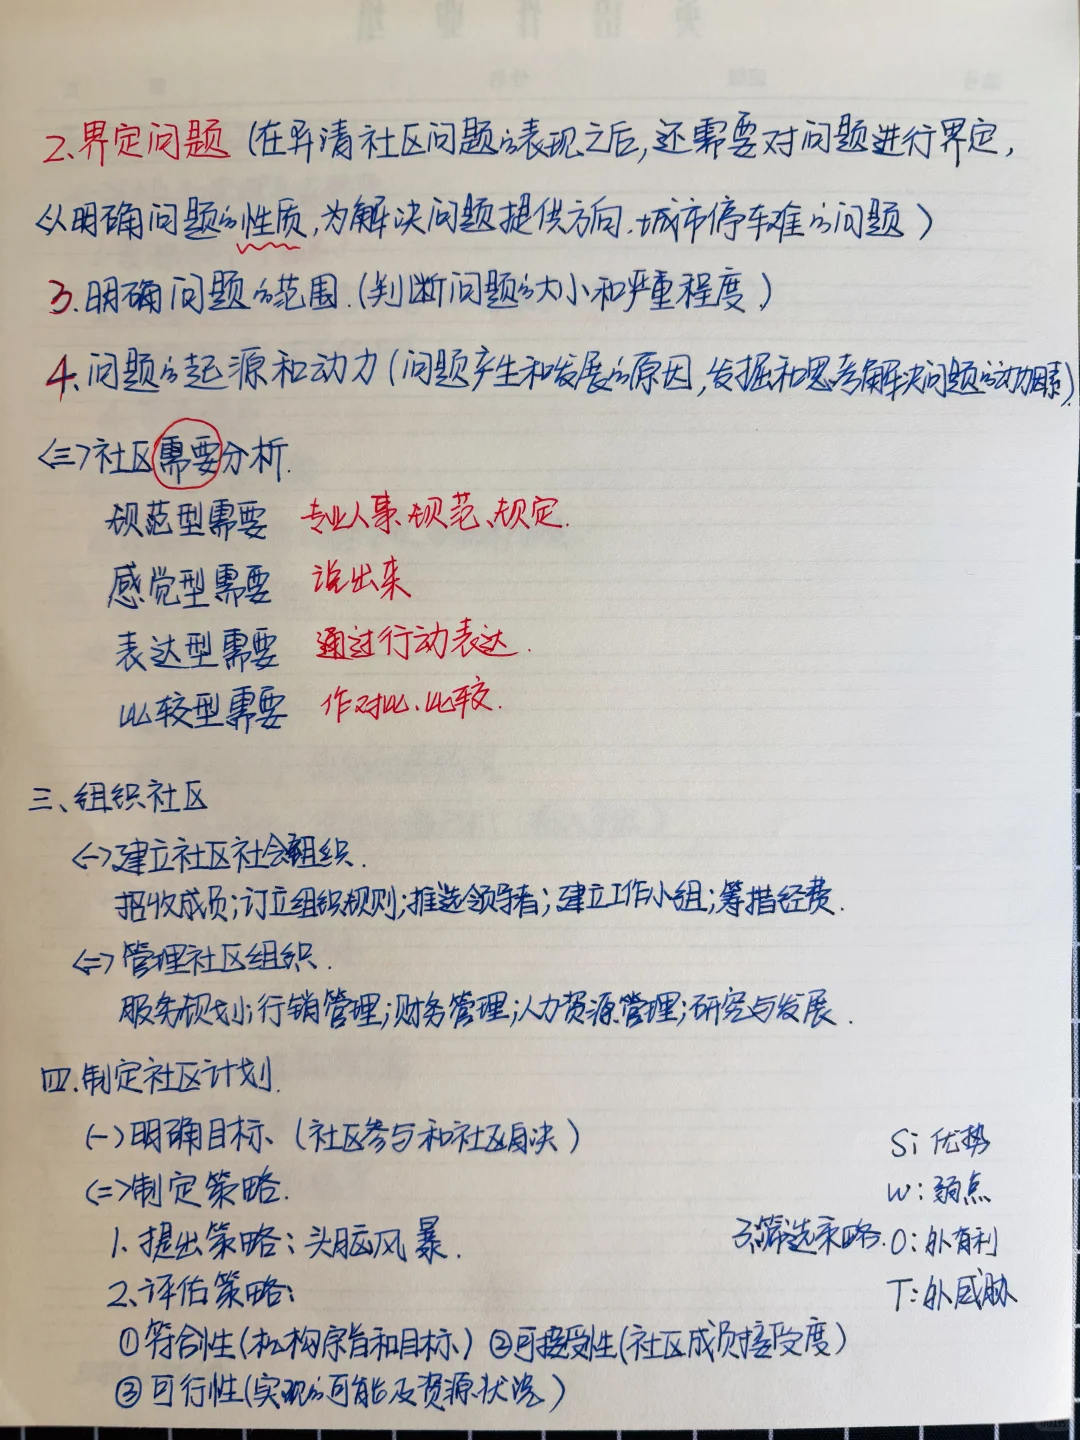 2、界定问题（在弄清社区问题的表现之后,还需要对问题进行界定,
以明确问题的性质,为解决问题提供方向.城市停车难的问题）
3.明确问题的范围.(判断问题的大小和严重程度)
4、问题的起源和动力(问题产生和发展的原因,发掘和思考解决问题的动力因素).
<三>社区需要分析.
规范型需要 专业人事、规范、规定.
感觉型需要 说出来
表达型需要 通过行动表达.
比较型需要 作对比、比较.
三、组织社区
<一>建立社区社会组织.
招收成员;订立组织规则;推选领导者;建立工作小组;筹措经费.
<二>管理社区组织.
服务规划;行销管理;财务管理;人力资源管理;研究与发展.
四.制定社区计划.
(一)明确目标、(社区参与和社区自决)
<二>制定策略.
1、提出策略:头脑风暴.
2、评估策略:
①符合性(机构宗旨和目标) ②可接受性(社区成员接受度)
③可行性(实现的可能及资源状况)
3.筛选策略.
S:优势
W:弱点
O:外有利
T:外威胁